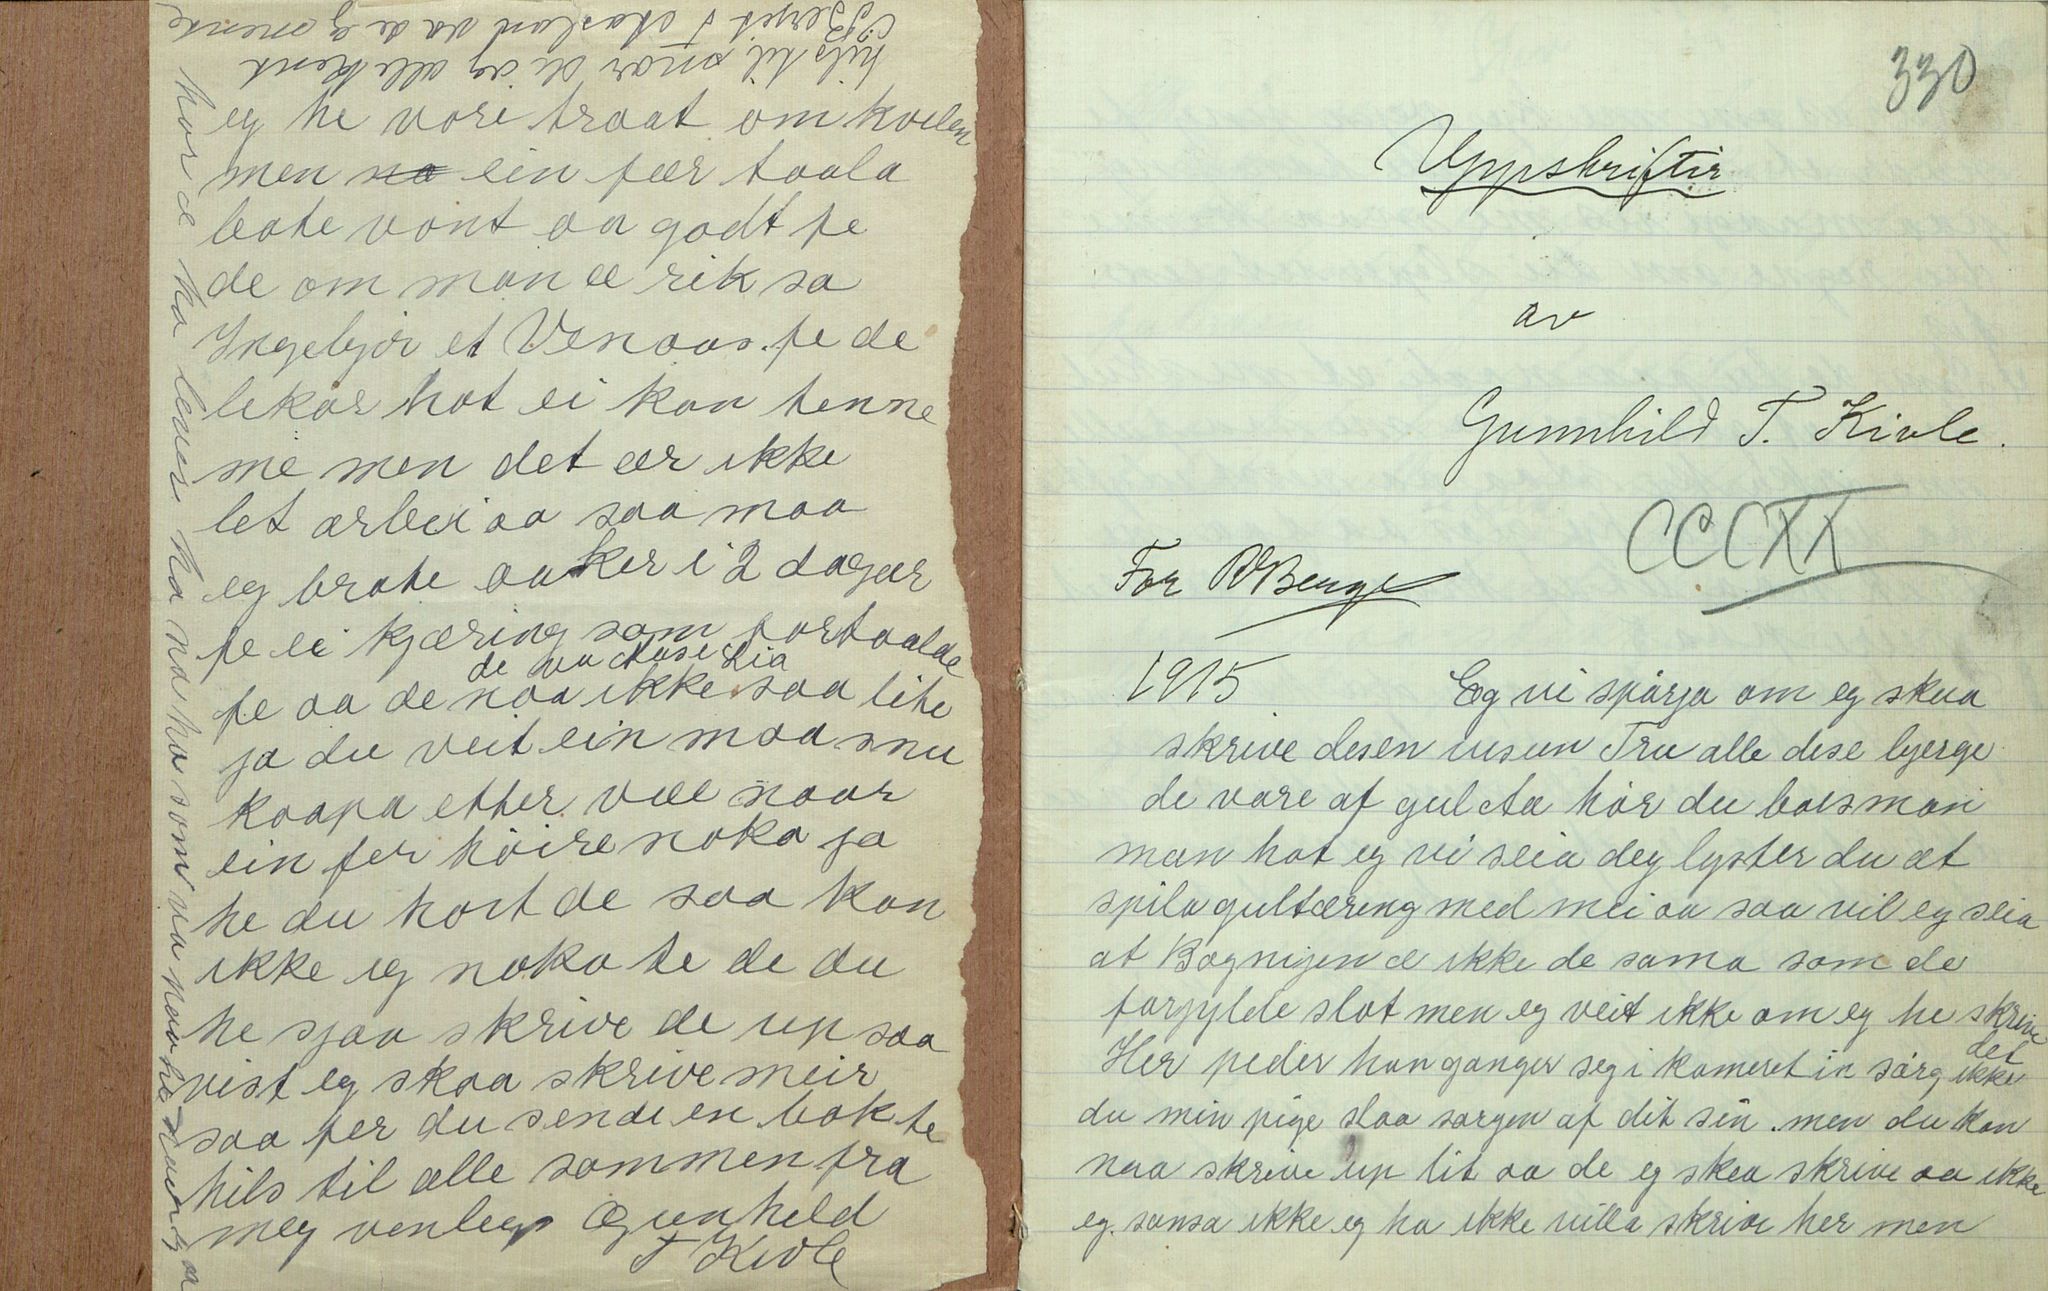 hils til mor di og alle kent
Bergit T Aasland va de eg mente
eg he vore traat om kvelen
men na ein fær taala
bate vont aa godt fe
de om man æ rik sa
Ingebjør et Venaas. fe de
lekar hot ei kan tenne
me men det ær ikke
let arbei aa saa maa
eg brate aaker i 2 dagær
fe ei kjæring som fortaalde
de va Aase Lia
fe aa de naa ikke saa lite
ja du veit ein maa snu
kaapa etter væe naar
ein fer höire noka ja
he du hort de saa kan
ikke eg noka te de du
he sjaa skrive de up saa
vist eg skaa skrive meir
saa fer du sende en bok te
hils til alle sammen fra
meg venleg Gunhild
T Kivle
hor æ ho lever ho na ho som va naa he
330
Uppskriftir
av
Gunnhild T. Kivle.
CCCXX
For RBerge
1915
Eg vi spörja om eg skua
skrive desen visun Tru alle dese bjerge
de vare af gul Aa hör du baesman
man hot eg vi seia deg lyster du æt
spila gultæring med mei aa saa vil eg seia
at Bognigen æ ikke de sama som de
forgylde slot men eg veit ikke om eg he skrive
det
Her peder han ganger seg i kameret in sörg ikke
du min pige slaa sorgen af dit sin. men du kan
naa skrive up lit aa de eg skea skrive aa ikke
eg sansa ikke eg ha ikke villa skrive her men